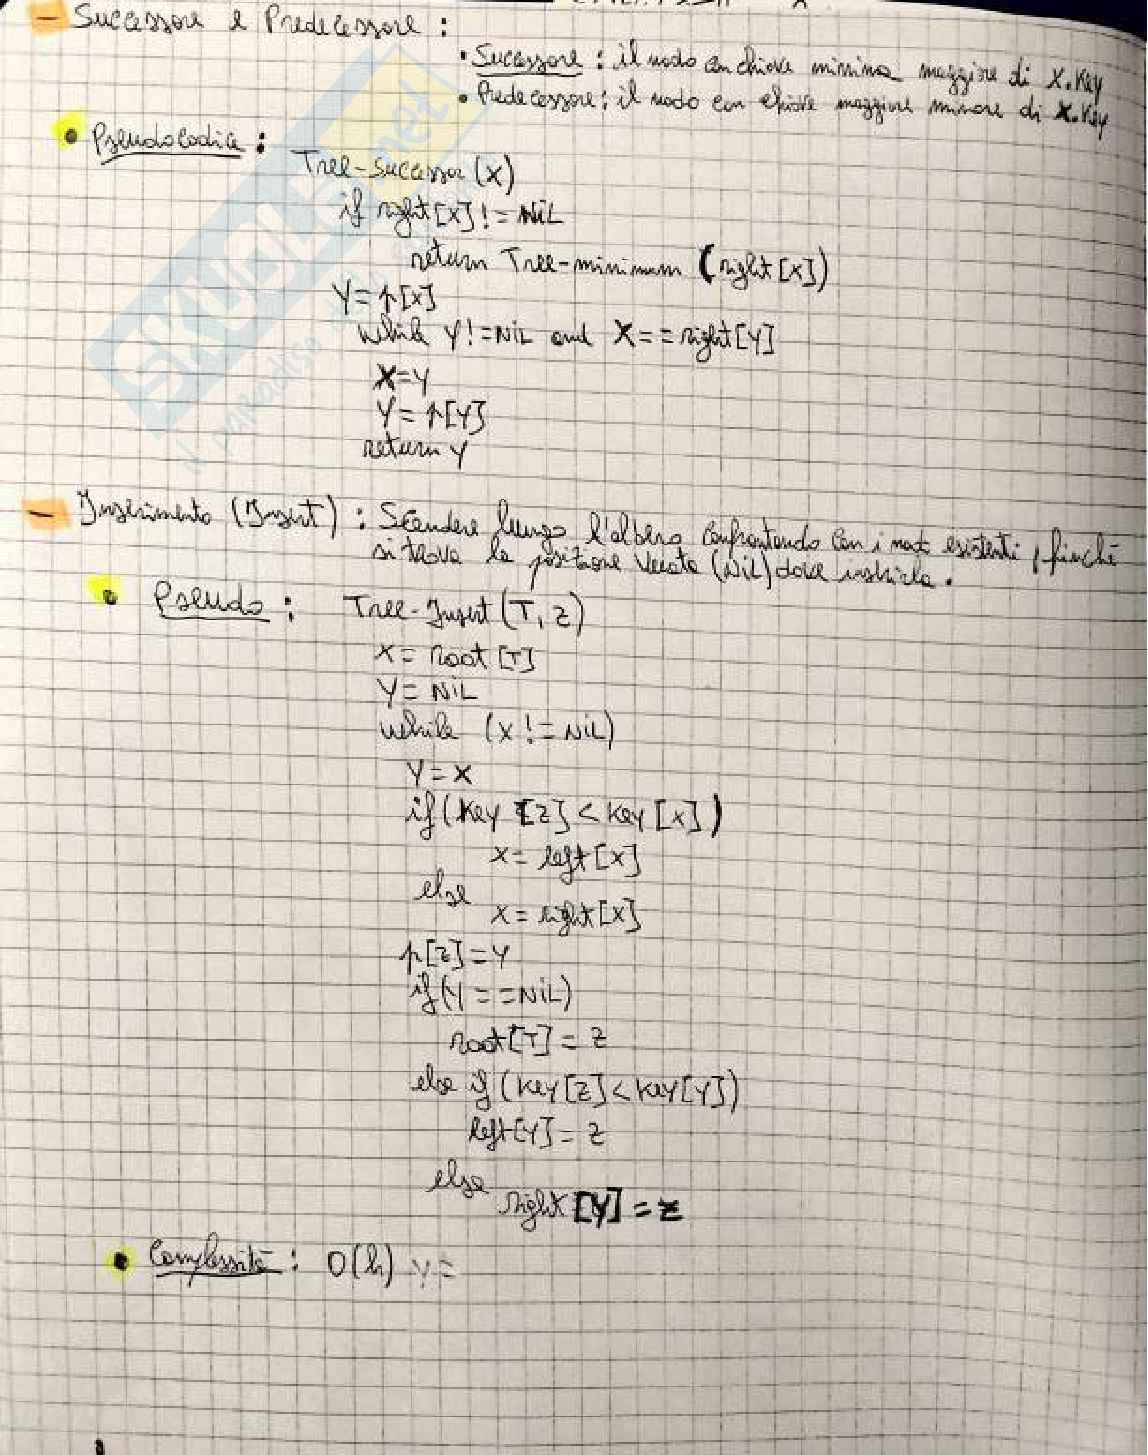 - Successore e Predecessore :
• Successore : il nodo con chiave minima maggiore di X.Key
• Predecessore : il nodo con chiave maggiore minore di X.Key
• Pseudocodice :
Tree-Successor (X)
if right[X] != NiL
return Tree-minimum (right[X])
Y = p[X]
while Y != NiL and X == right[Y]
X = Y
Y = p[Y]
return Y
- Inserimento (Insert) : Scendere lungo l'albero confrontando con i nodi esistenti, finché
si trova la posizione vuota (NiL) dove inserirla.
• Pseudo : Tree-Insert (T, z)
X = Root [T]
Y = NiL
while (X != NiL)
Y = X
if (Key [z] < Key [X])
X = left [X]
else
X = right [X]
p[z] = Y
if (Y == NiL)
root[T] = z
else if (Key [z] < Key [Y])
left[Y] = z
else
right [Y] = z
• Complessità : O(h) Y =
SKUOLA.net
il paradiso